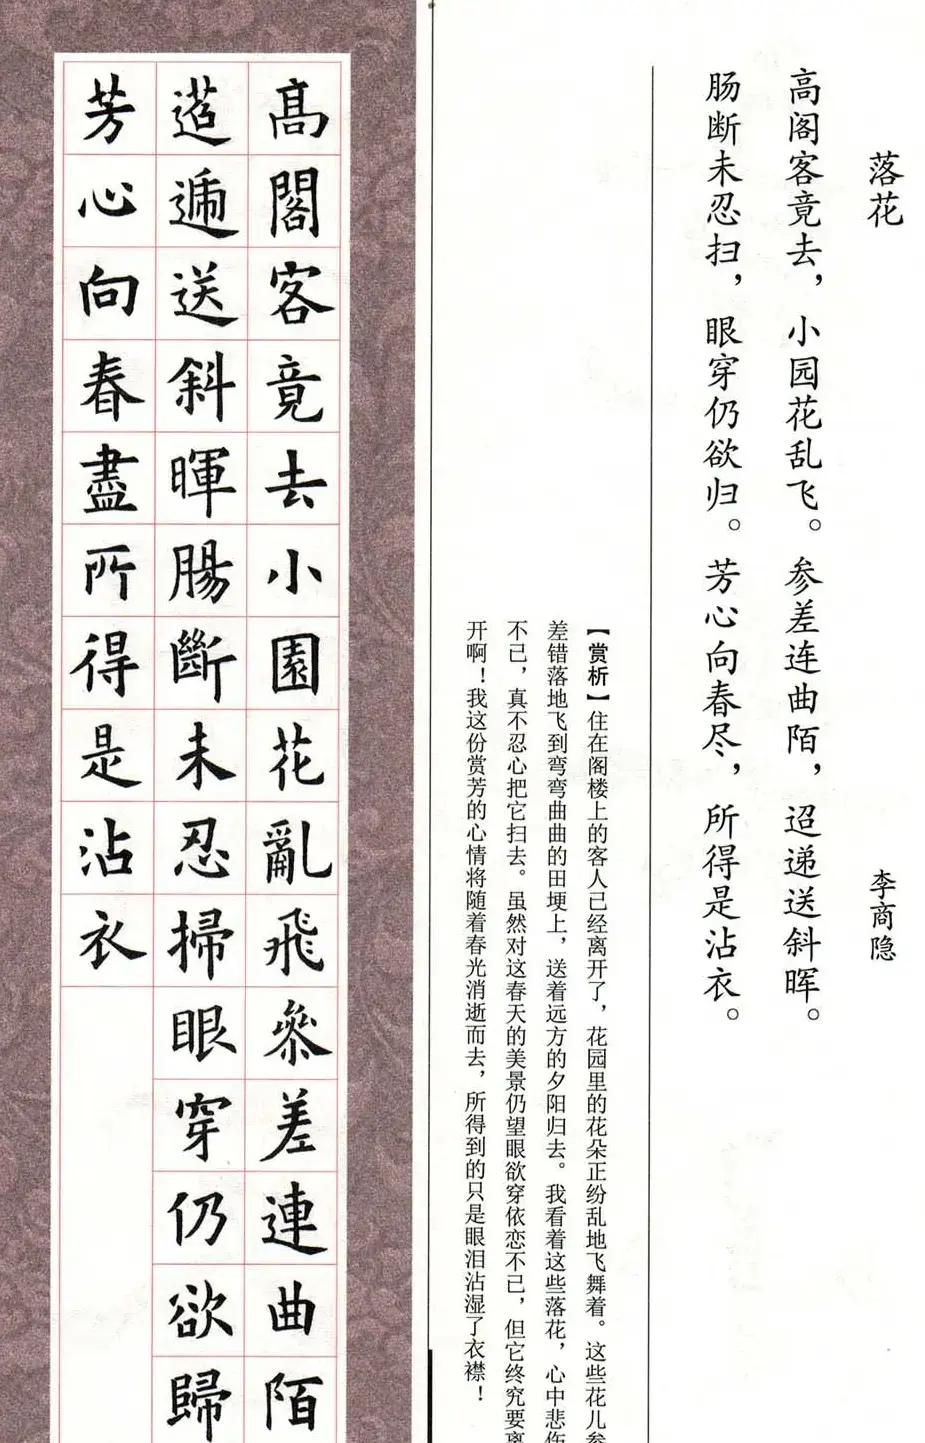 落花
李商隐
高阁客竟去，小园花乱飞。参差连曲陌，迢递送斜晖。
肠断未忍扫，眼穿仍欲归。芳心向春尽，所得是沾衣。
【赏析】住在阁楼上的客人已经离开了，花园里的花朵正纷乱地飞舞着。这些花儿参
差错落地飞到弯弯曲曲的田埂上，送着远方的夕阳归去。我看着这些落花，心中悲伤
不已，真不忍心把它扫去。虽然对这春天的美景仍望眼欲穿依恋不已，但它终究要离
开啊！我这份赏芳的心情将随着春光消逝而去，所得到的只是眼泪沾湿了衣襟！
高閣客竟去小園花亂飛參差連曲陌
迢遞送斜暉腸斷未忍掃眼穿仍欲歸
芳心向春盡所得是沾衣